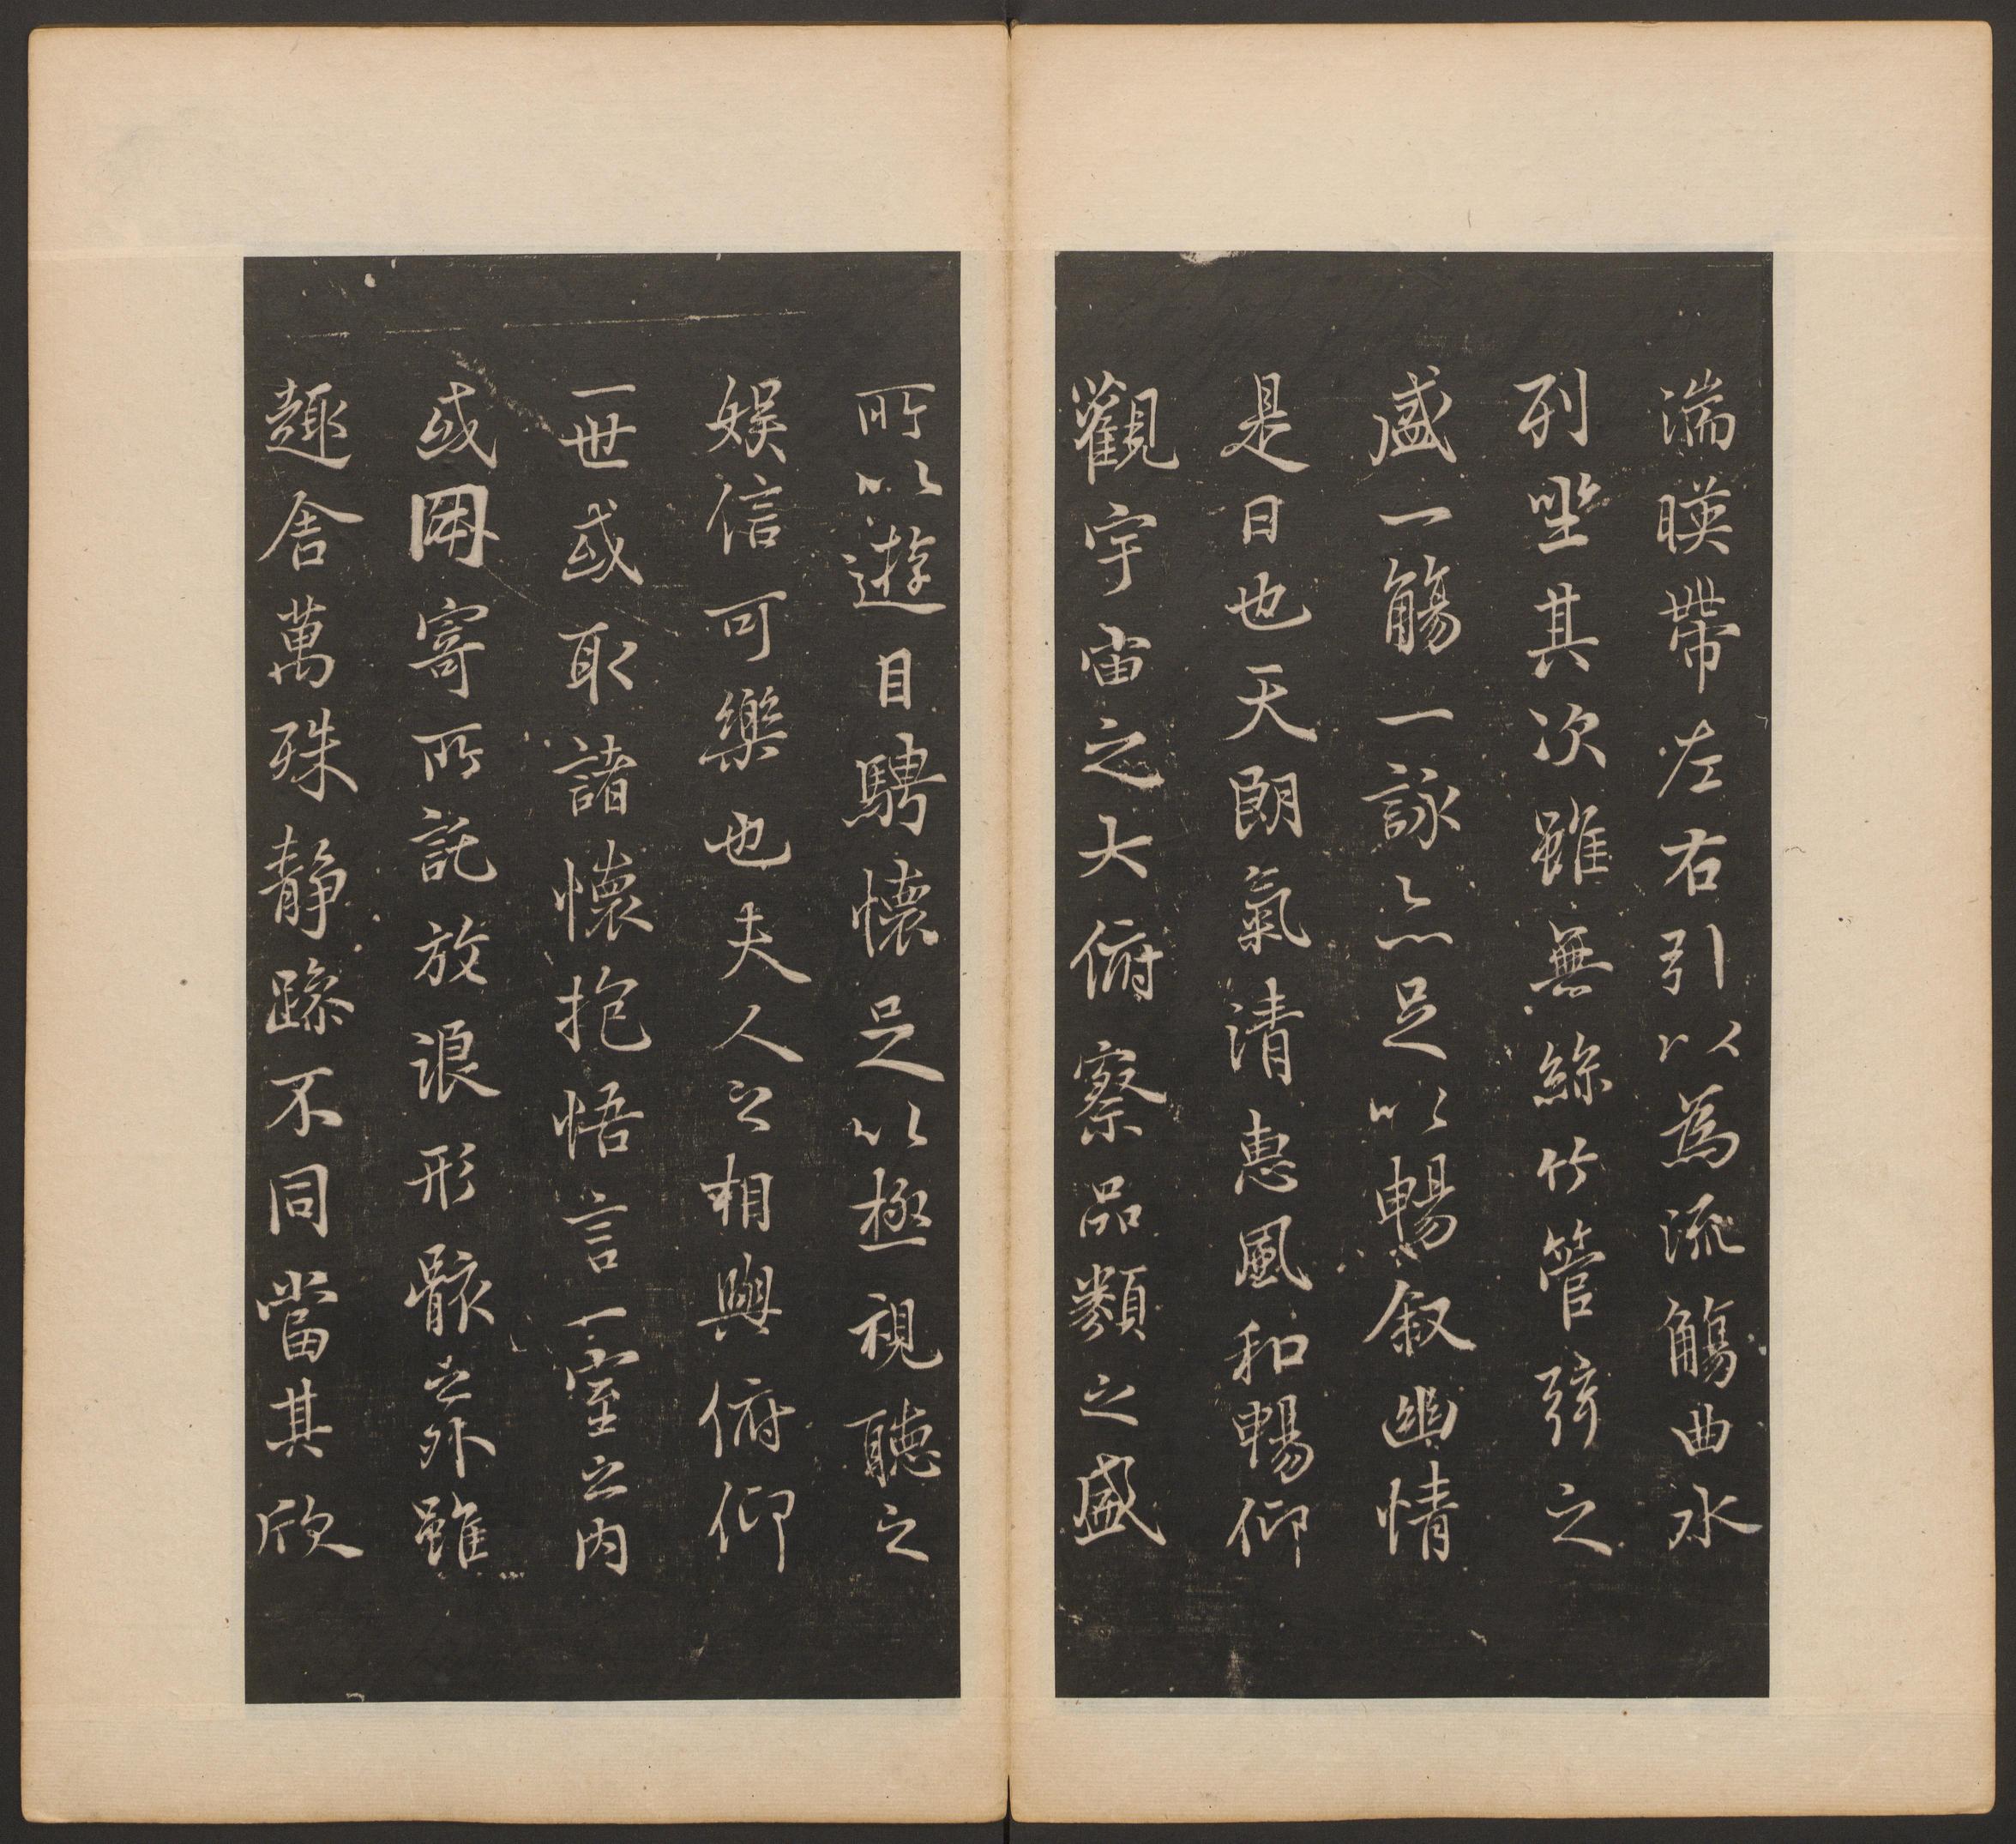 湍暎帶左右引以為流觴曲水
列坐其次雖無絲竹管弦之
盛一觴一詠亦足以暢叙幽情
是日也天朗氣清惠風和暢仰
觀宇宙之大俯察品類之盛
所以遊目騁懷足以極視聽之
娛信可樂也夫人之相與俯仰
一世或取諸懷抱悟言一室之內
或因寄所託放浪形骸之外雖
趣舍萬殊静躁不同當其欣